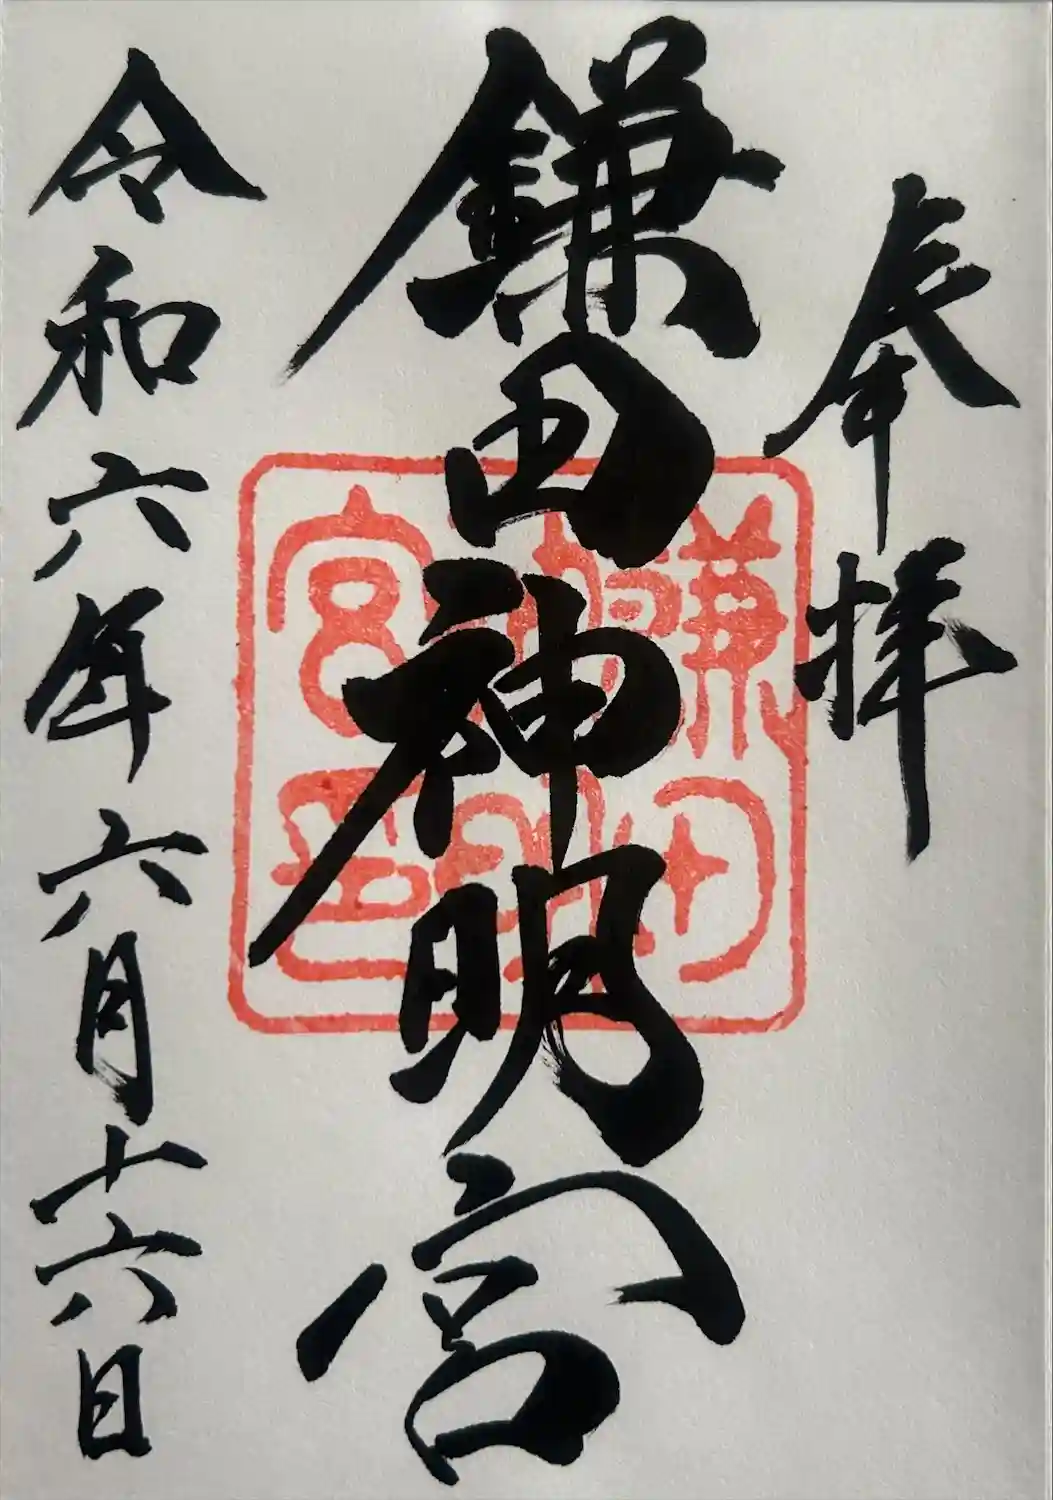 奉拝
鎌田神明宮
鎌田神明宮印
令和六年六月十六日